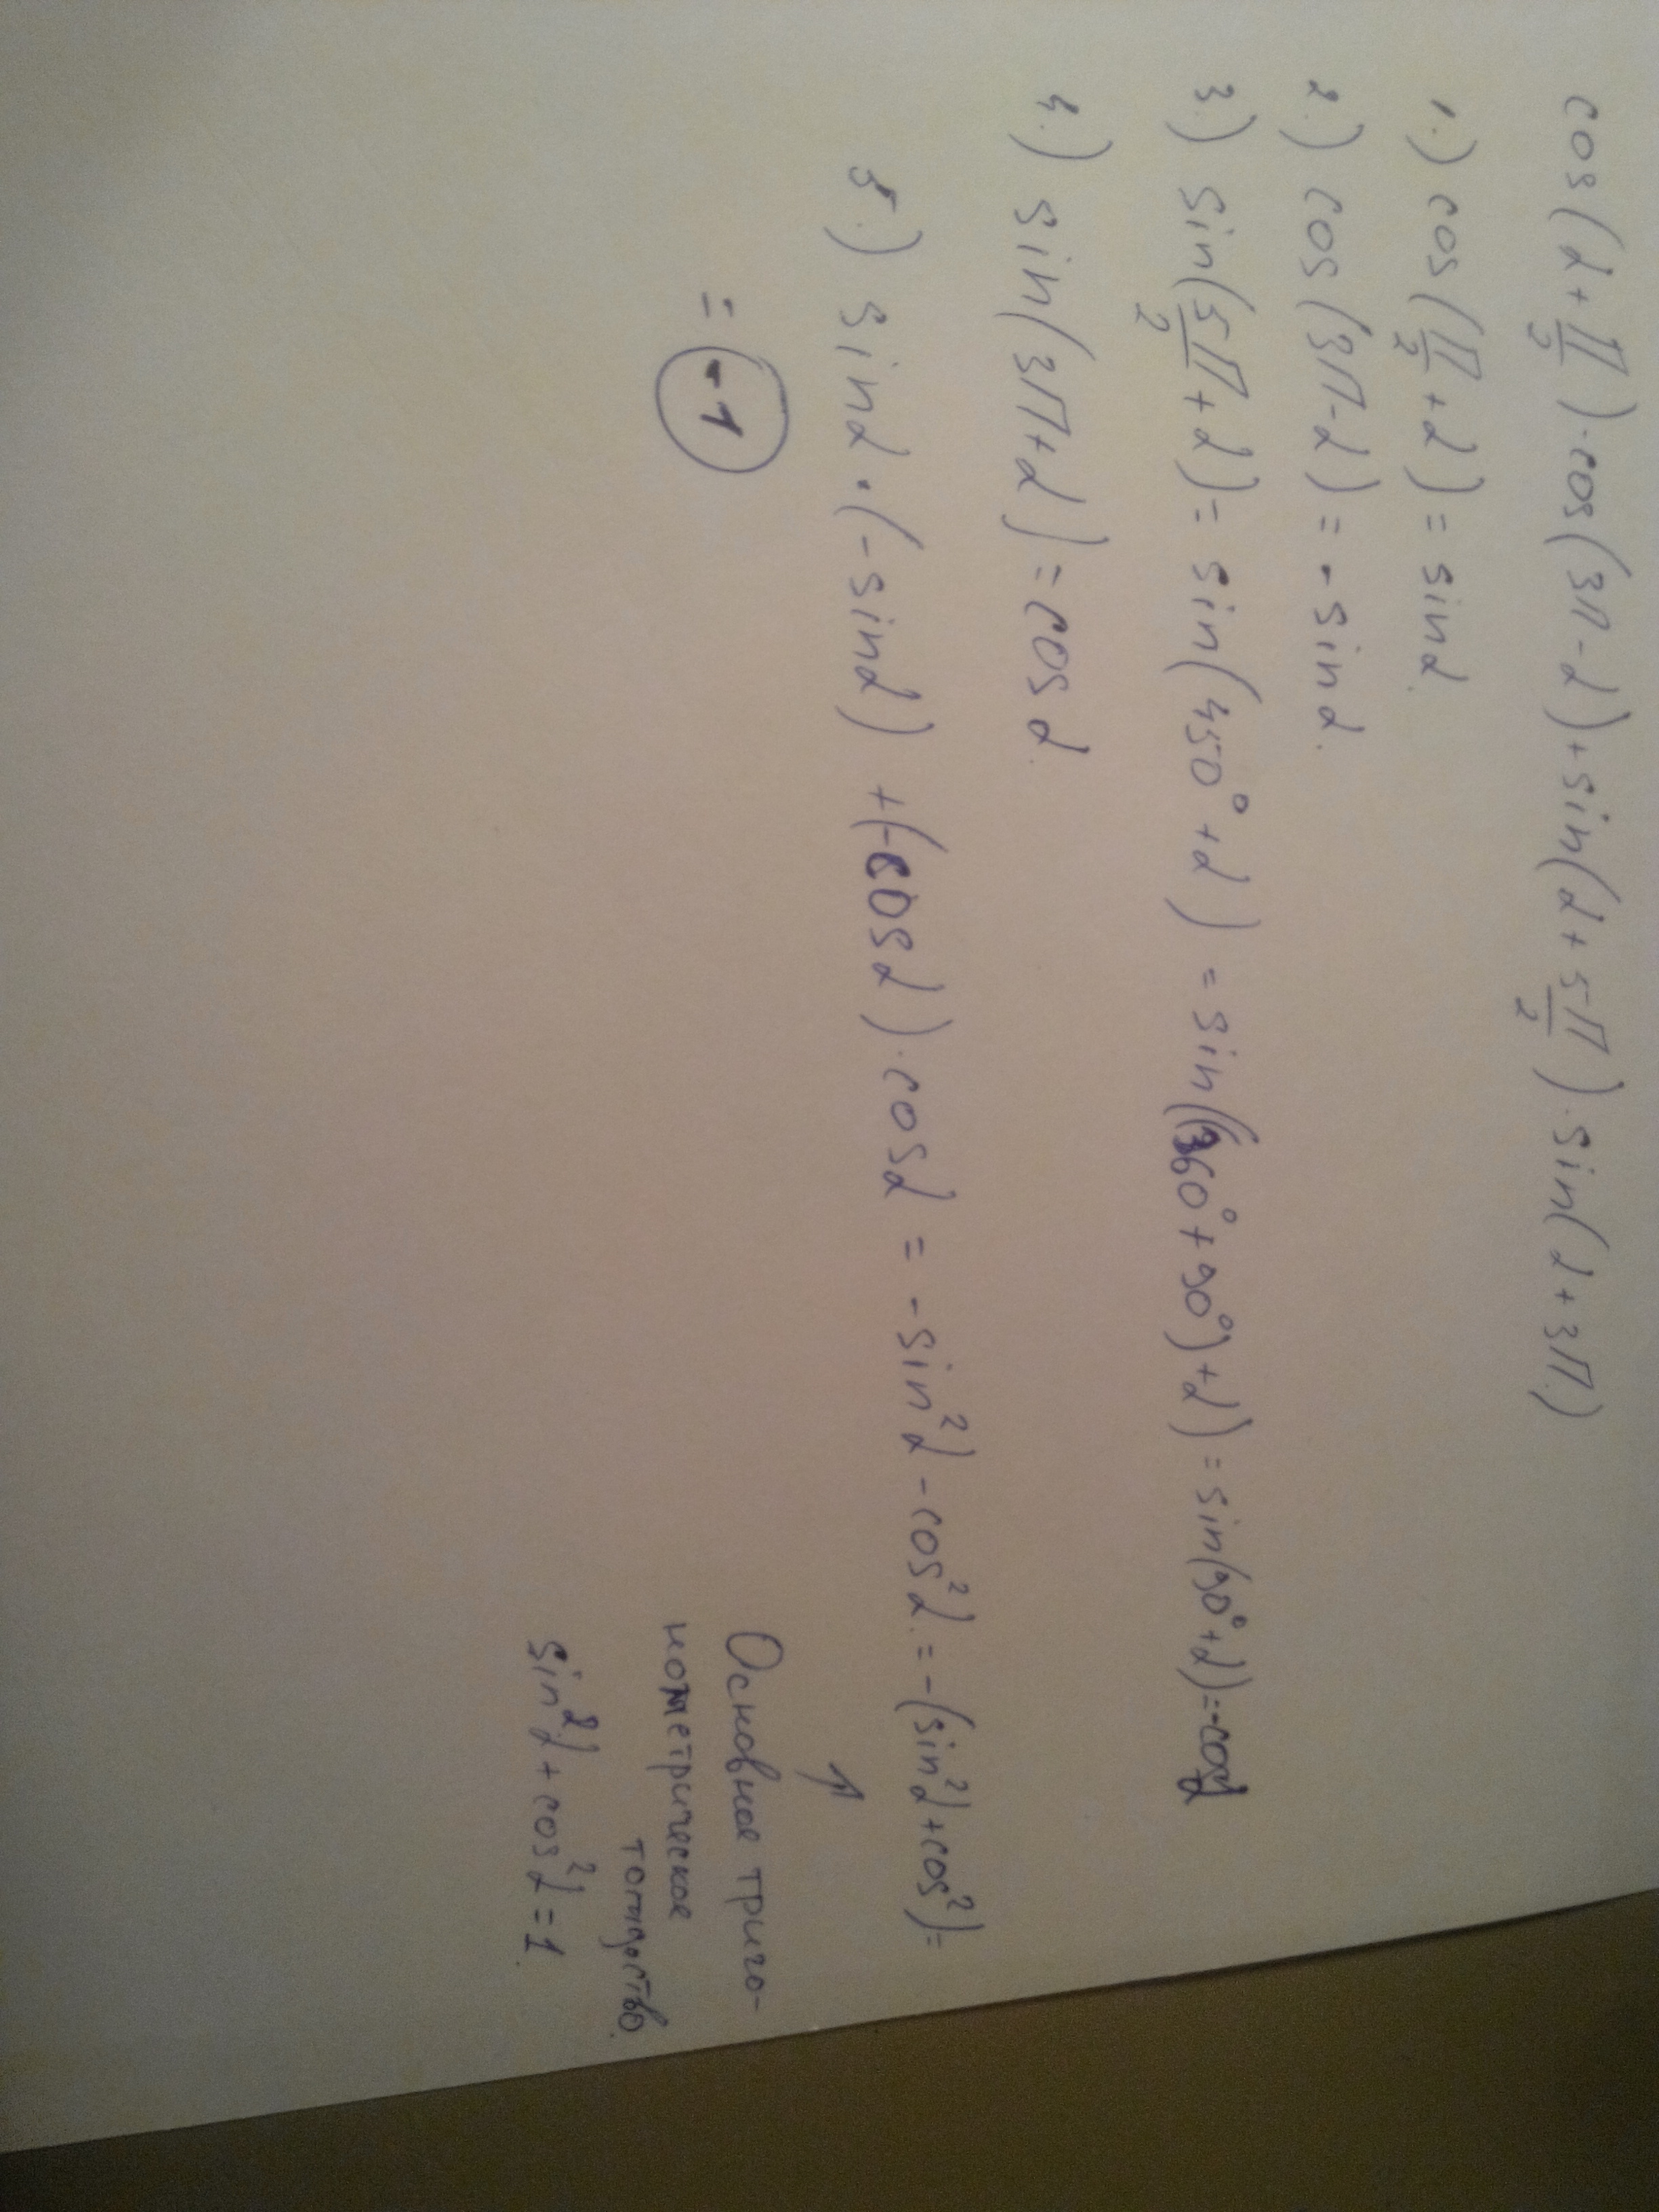 cos(α + π/2) · cos(3π - α) + sin(α + 5π/2) · sin(α + 3π)
1.) cos(π/2 + α) = sin α.
2.) cos(3π - α) = - sin α.
3.) sin(5π/2 + α) = sin(450° + α) = sin((360° + 90°) + α) = sin(90° + α) = -cos α
4.) sin(3π + α) = cos α.
5.) sin α · (-sin α) + (-cos α) · cos α = - sin² α - cos² α. = -(sin² α + cos²) =
= -1
Основное триго-
нометрическое
тождество.
sin² α + cos² α = 1.